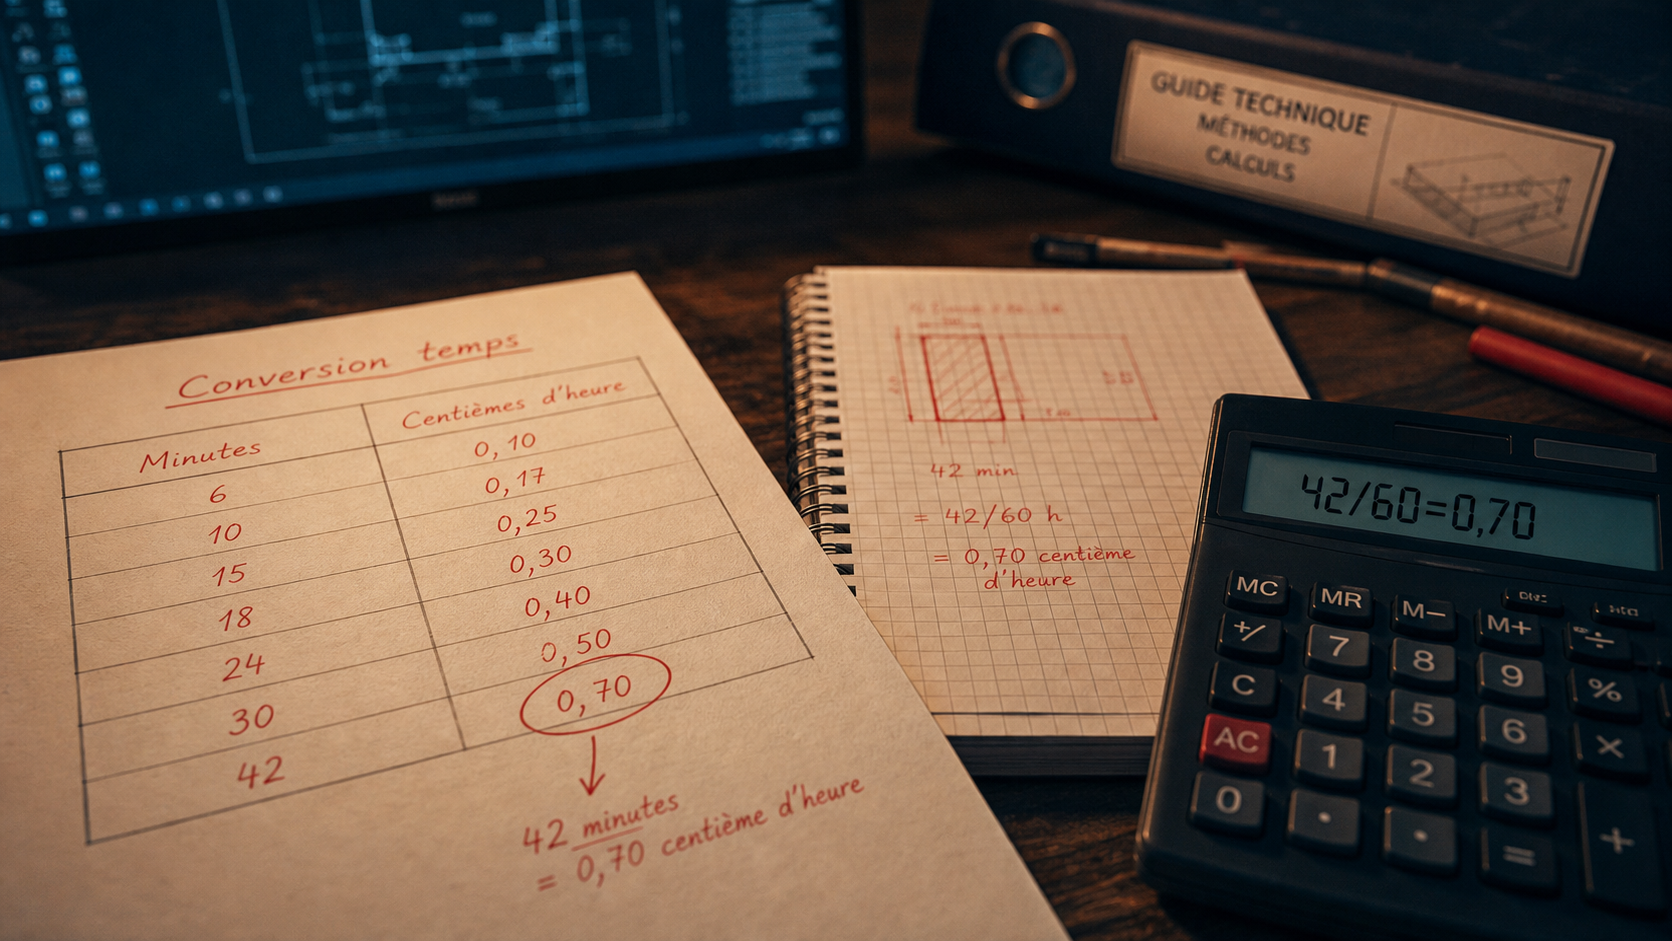 GUIDE TECHNIQUE
MÉTHODES
CALCULS
Conversion temps
Minutes Centièmes d'heure
6 0,10
10 0,17
15 0,25
18 0,30
24 0,40
30 0,50
42 0,70
42 minutes
= 0,70 centième d'heure
42 min
= 42/60 h
= 0,70 centième
d'heure
42/60=0,70
MC MR M− M+
+/− 7 8 9 ÷
C 4 5 6 % 
AC 1 2 3 ×
0 . . = +